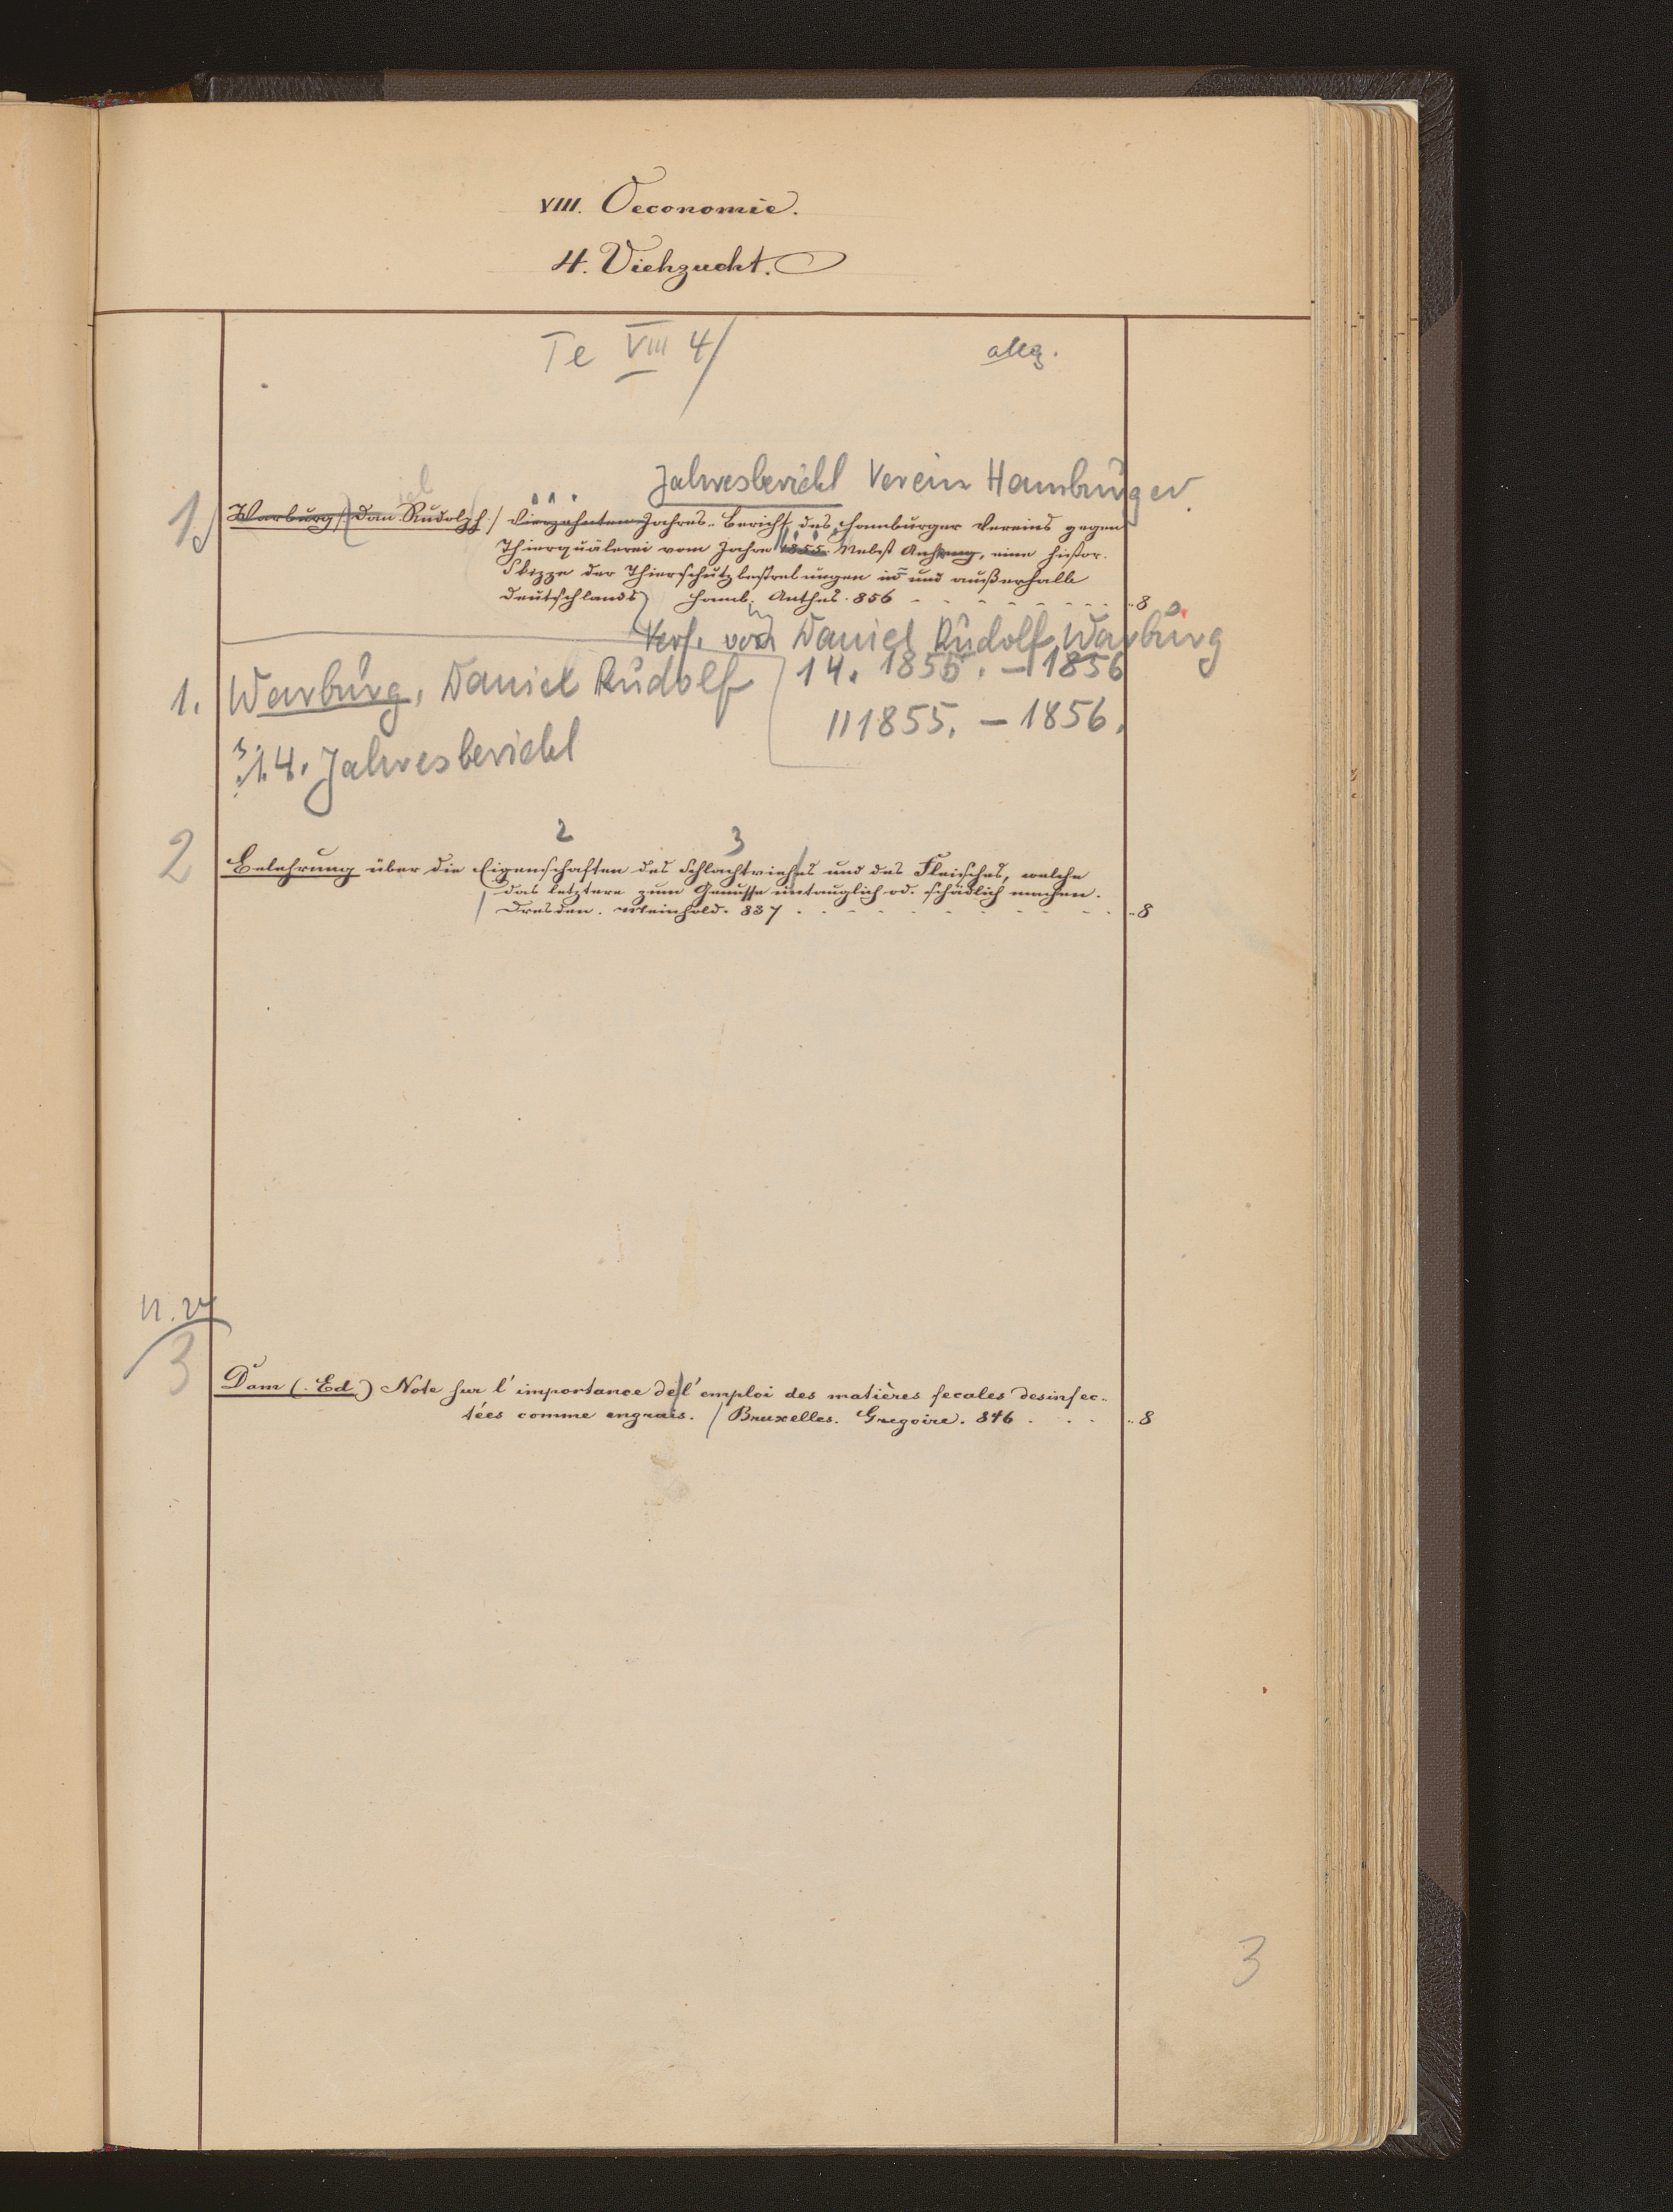 VIII. Oeconomie.
4. Viehzucht.
Te VIII 4/
allg.
Jahresbericht Verein Hamburger
1.) Warburg (Dan Rudolph) Vierzehnten Jahres-Bericht des Hamburger Vereins gegen
iel
Thierquälerei vom Jahre 1855. Nebst Anhang, eine histor.
Skizze der Thierschutzbestrebungen in= und außerhalb
Deutschlands) Hamb. Anthes. 856 8
Verf. von Daniel Rudolf Warburg
1. Warburg, Daniel Rudolf
14. 1855. – 1856
11 1855. – 1856.
14. Jahresbericht
2 3
2 Belehrung über die Eigenschaften des Schlachtviehes und des Fleisches, welche
das letztere zum Genusse untauglich od. schädlich machen.
Dresden. Meinhold. 837 8
3 Dam (Ed.) Note sur l'importance de l'emploi des matières fecales desinfec-
tées comme engrais. / Bruxelles. Gregoire. 846 8
3